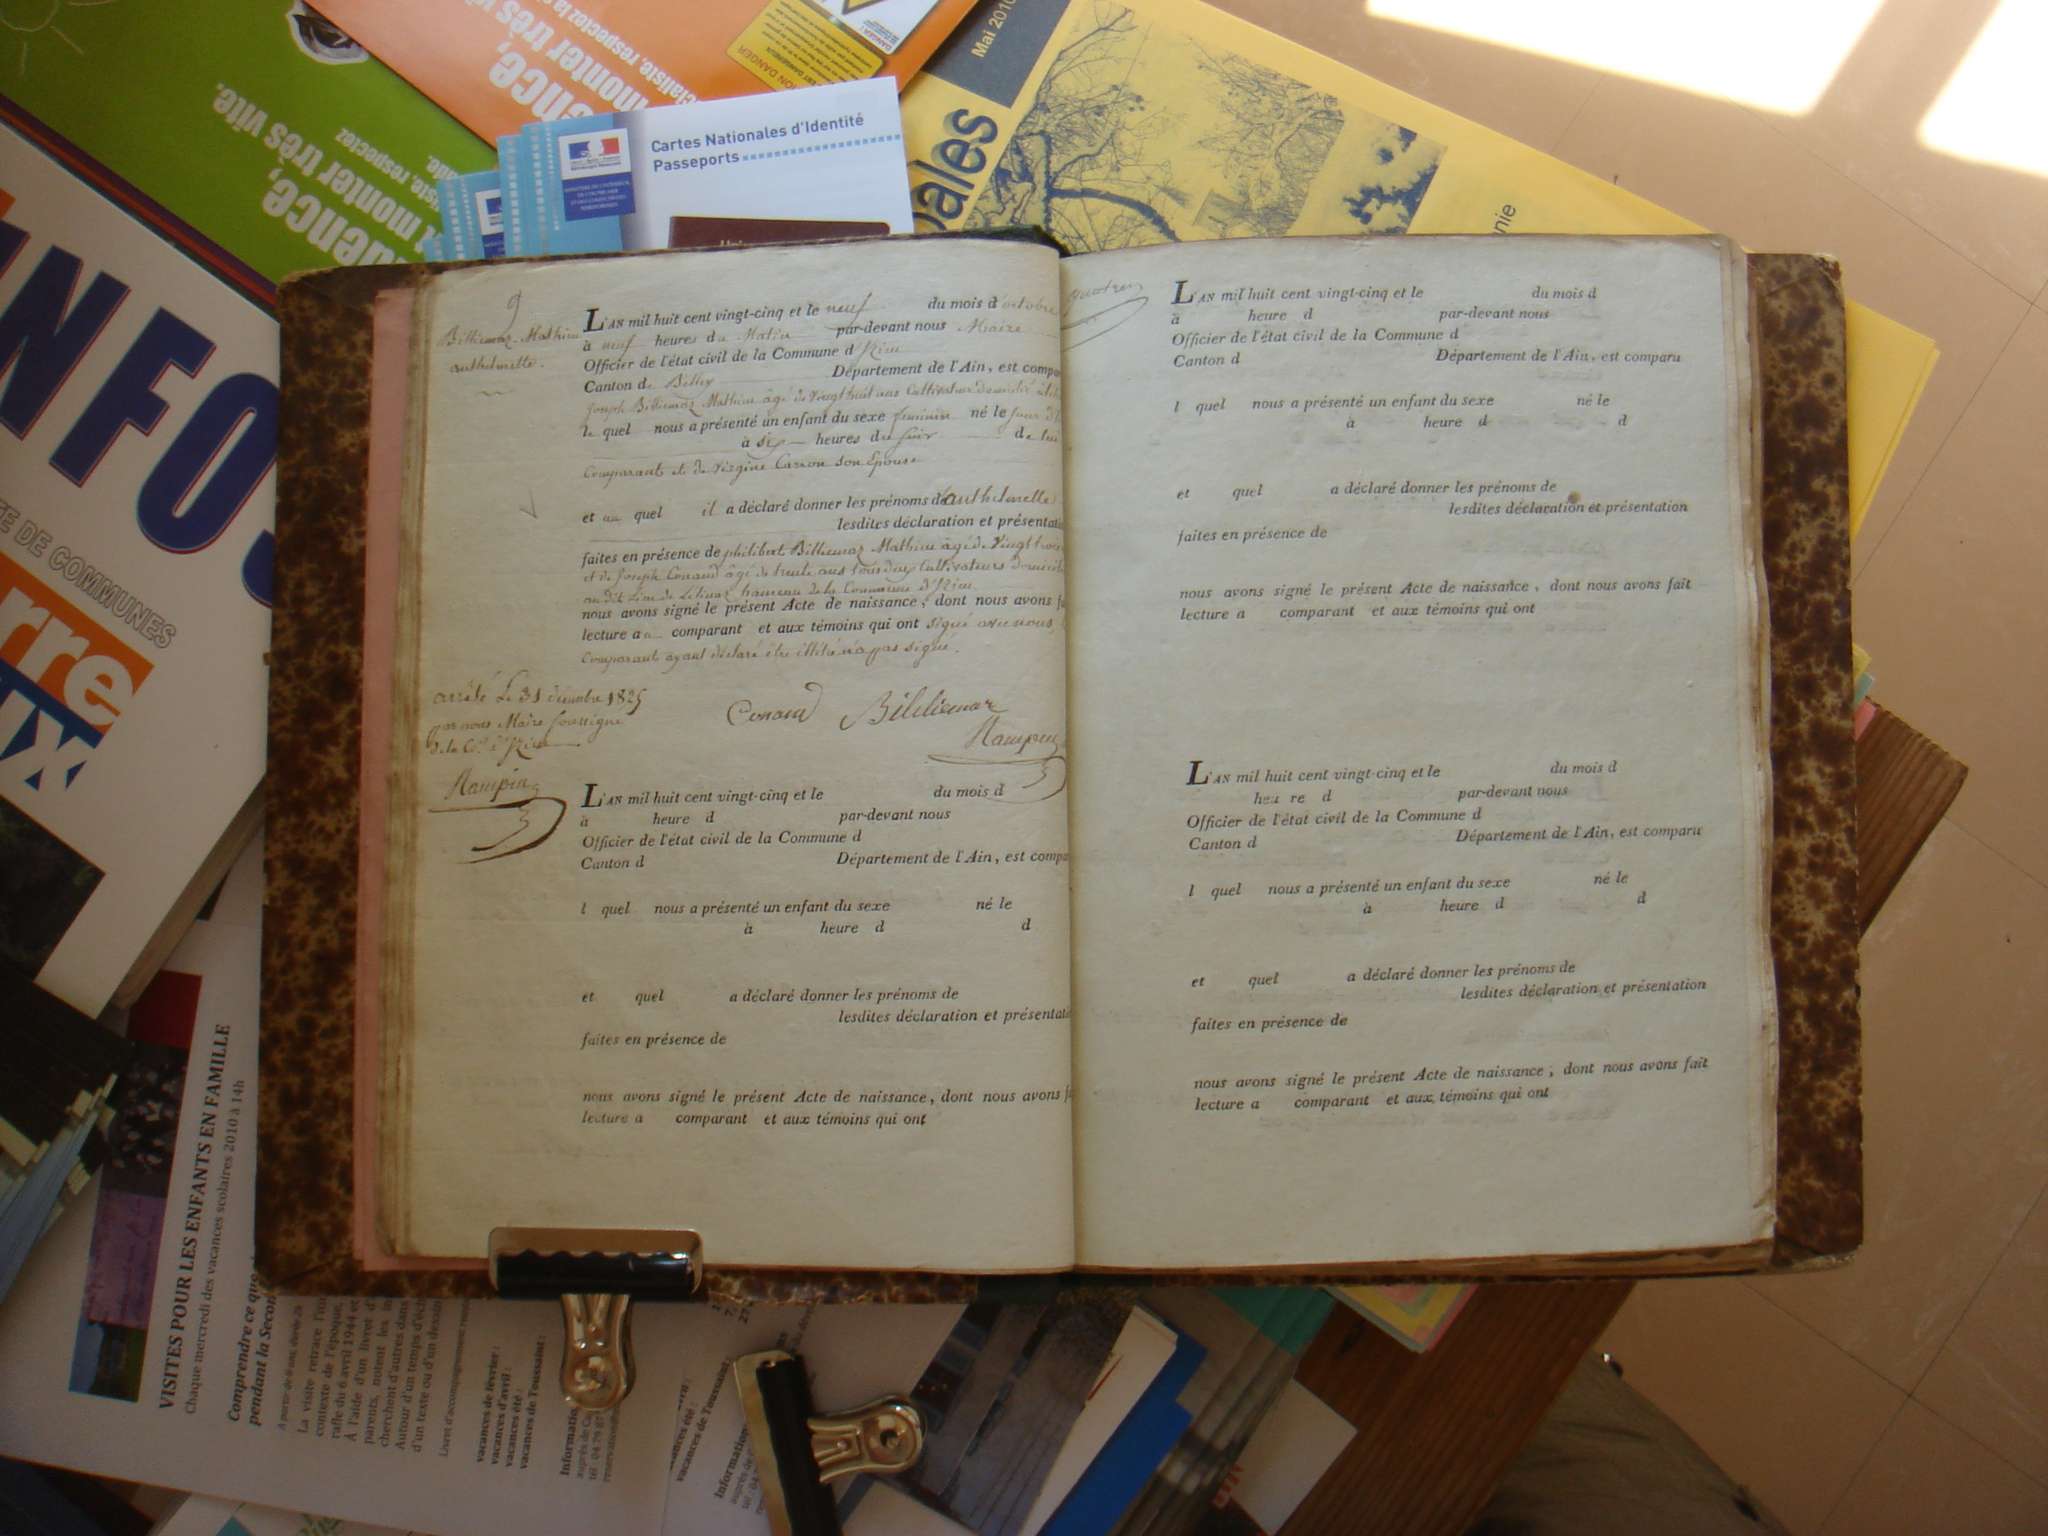 Mai 2010
Cartes Nationales d'Identité
Passeports
monter très vite.
NFOS
E DE COMMUNES
VISITES POUR LES ENFANTS EN FAMILLE
Chaque mercredi des vacances scolaires 2010 à 14h
Comprendre ce que
pendant la Secon
La visite retrace l'
contexte de l'époque,
rafle du 6 avril 1944 et
À l'aide d'un livret d'
parents, notent les in
cherchent d'autres dans
Autour d'un temps d'éch
d'un texte ou d'un dessin
vacances de février :
vacances d'avril :
vacances été :
vacances de Toussaint :
9
Billiemaz-Mathieu
anthelmette.
L'AN mil huit cent vingt-cinq et le neuf du mois d'octobre
à neuf heures du Matin par-devant nous Maire
Officier de l'état civil de la Commune d'
Canton de Département de l'Ain, est compa
joseph Billiemaz Mathieu âgé de vingt huit ans Cultivateur
le quel nous a présenté un enfant du sexe feminin né le jour
à six heures du soir de lui
Comparant et de virgine Carron son Epouse
et au quel il a déclaré donner les prénoms d'anthelmette
lesdites déclaration et présentati
faites en présence de philibert Billiemaz Mathieu âgé de Vingt trois
et de Joseph Conand âgé de trente ans tous deux Cultivateurs
au dit Lieu de hameau de la Commune d'
nous avons signé le présent Acte de naissance, dont nous avons f
lecture au comparant et aux témoins qui ont signé avec nous,
Comparant ayant déclaré être illitéré n'a pas signé.
arrêté Le 31 décembre 1825
par nous Maire soussigné
Conand Billiemaz
Rampin
Rampin
L'AN mil huit cent vingt-cinq et le du mois d
à heure d par-devant nous
Officier de l'état civil de la Commune d
Canton d Département de l'Ain, est compa
l quel nous a présenté un enfant du sexe né le
à heure d d
et quel a déclaré donner les prénoms de
lesdites déclaration et présentati
faites en présence de
nous avons signé le présent Acte de naissance, dont nous avons f
lecture a comparant et aux témoins qui ont
L'AN mil huit cent vingt-cinq et le du mois d
à heure d par-devant nous
Officier de l'état civil de la Commune d
Canton d Département de l'Ain, est comparu
l quel nous a présenté un enfant du sexe né le
à heure d d
et quel a déclaré donner les prénoms de
lesdites déclaration et présentation
faites en présence de
nous avons signé le présent Acte de naissance, dont nous avons fait
lecture a comparant et aux témoins qui ont
L'AN mil huit cent vingt-cinq et le du mois d
heu re d par-devant nous
Officier de l'état civil de la Commune d
Canton d Département de l'Ain, est comparu
l quel nous a présenté un enfant du sexe né le
à heure d d
et quel a déclaré donner les prénoms de
lesdites déclaration et présentation
faites en présence de
nous avons signé le présent Acte de naissance, dont nous avons fait
lecture a comparant et aux témoins qui ont